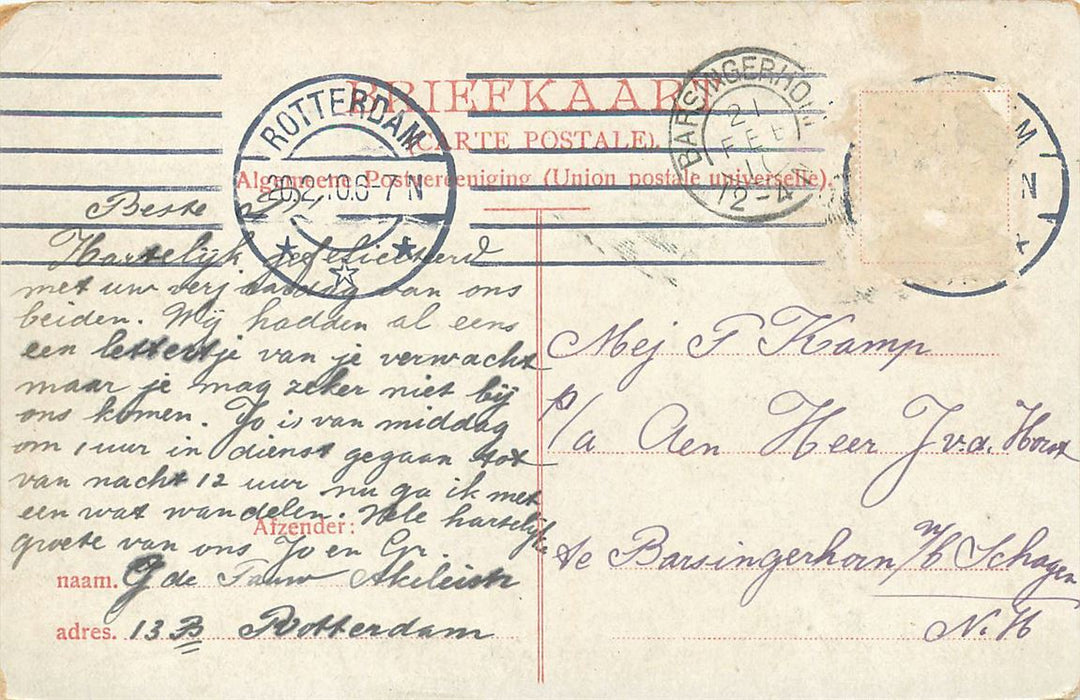 BRIEFKAART
(CARTE POSTALE).
Algemeene Postvereeniging (Union postale universelle).
ROTTERDAM
20.2.10.6-7 N
BARSINGERHORN
21 FEB 10
12-4
M
N
Beste
Hartelijk gefeliciteerd
met uw verjaardag van ons
beiden. Wij hadden al eens
een lettertje van je verwacht
maar je mag zeker niet bij
ons komen. Jo is van middag
om 1 uur in dienst gegaan tot
van nacht 12 uur nu ga ik met
een wat wandelen. Vele hartelijke
groete van ons Jo en Gr.
Afzender:
naam. G de Fauw Akeleistr
adres. 13 B Rotterdam
Mej F Kamp
p/a Aen Heer J v.d. Horst
te Barsingerhorn n/b Schagen
N.H